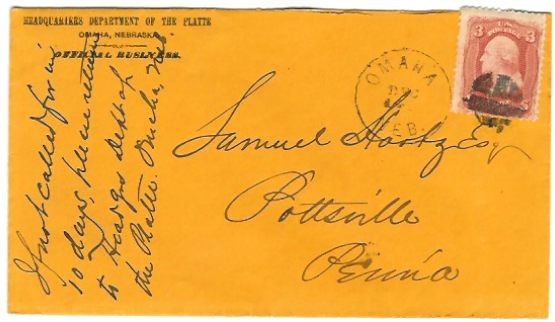 HEADQUARTERS DEPARTMENT OF THE PLATTE
OMAHA, NEBRASKA
OFFICIAL BUSINESS.
If not called for in
10 days, please return
to Headqrs Dept of
the Platte. Omaha, Neb.
OMAHA
DEC
NEB.
3 U.S. 3
Samuel Hartz Esq
Pottsville
Penna